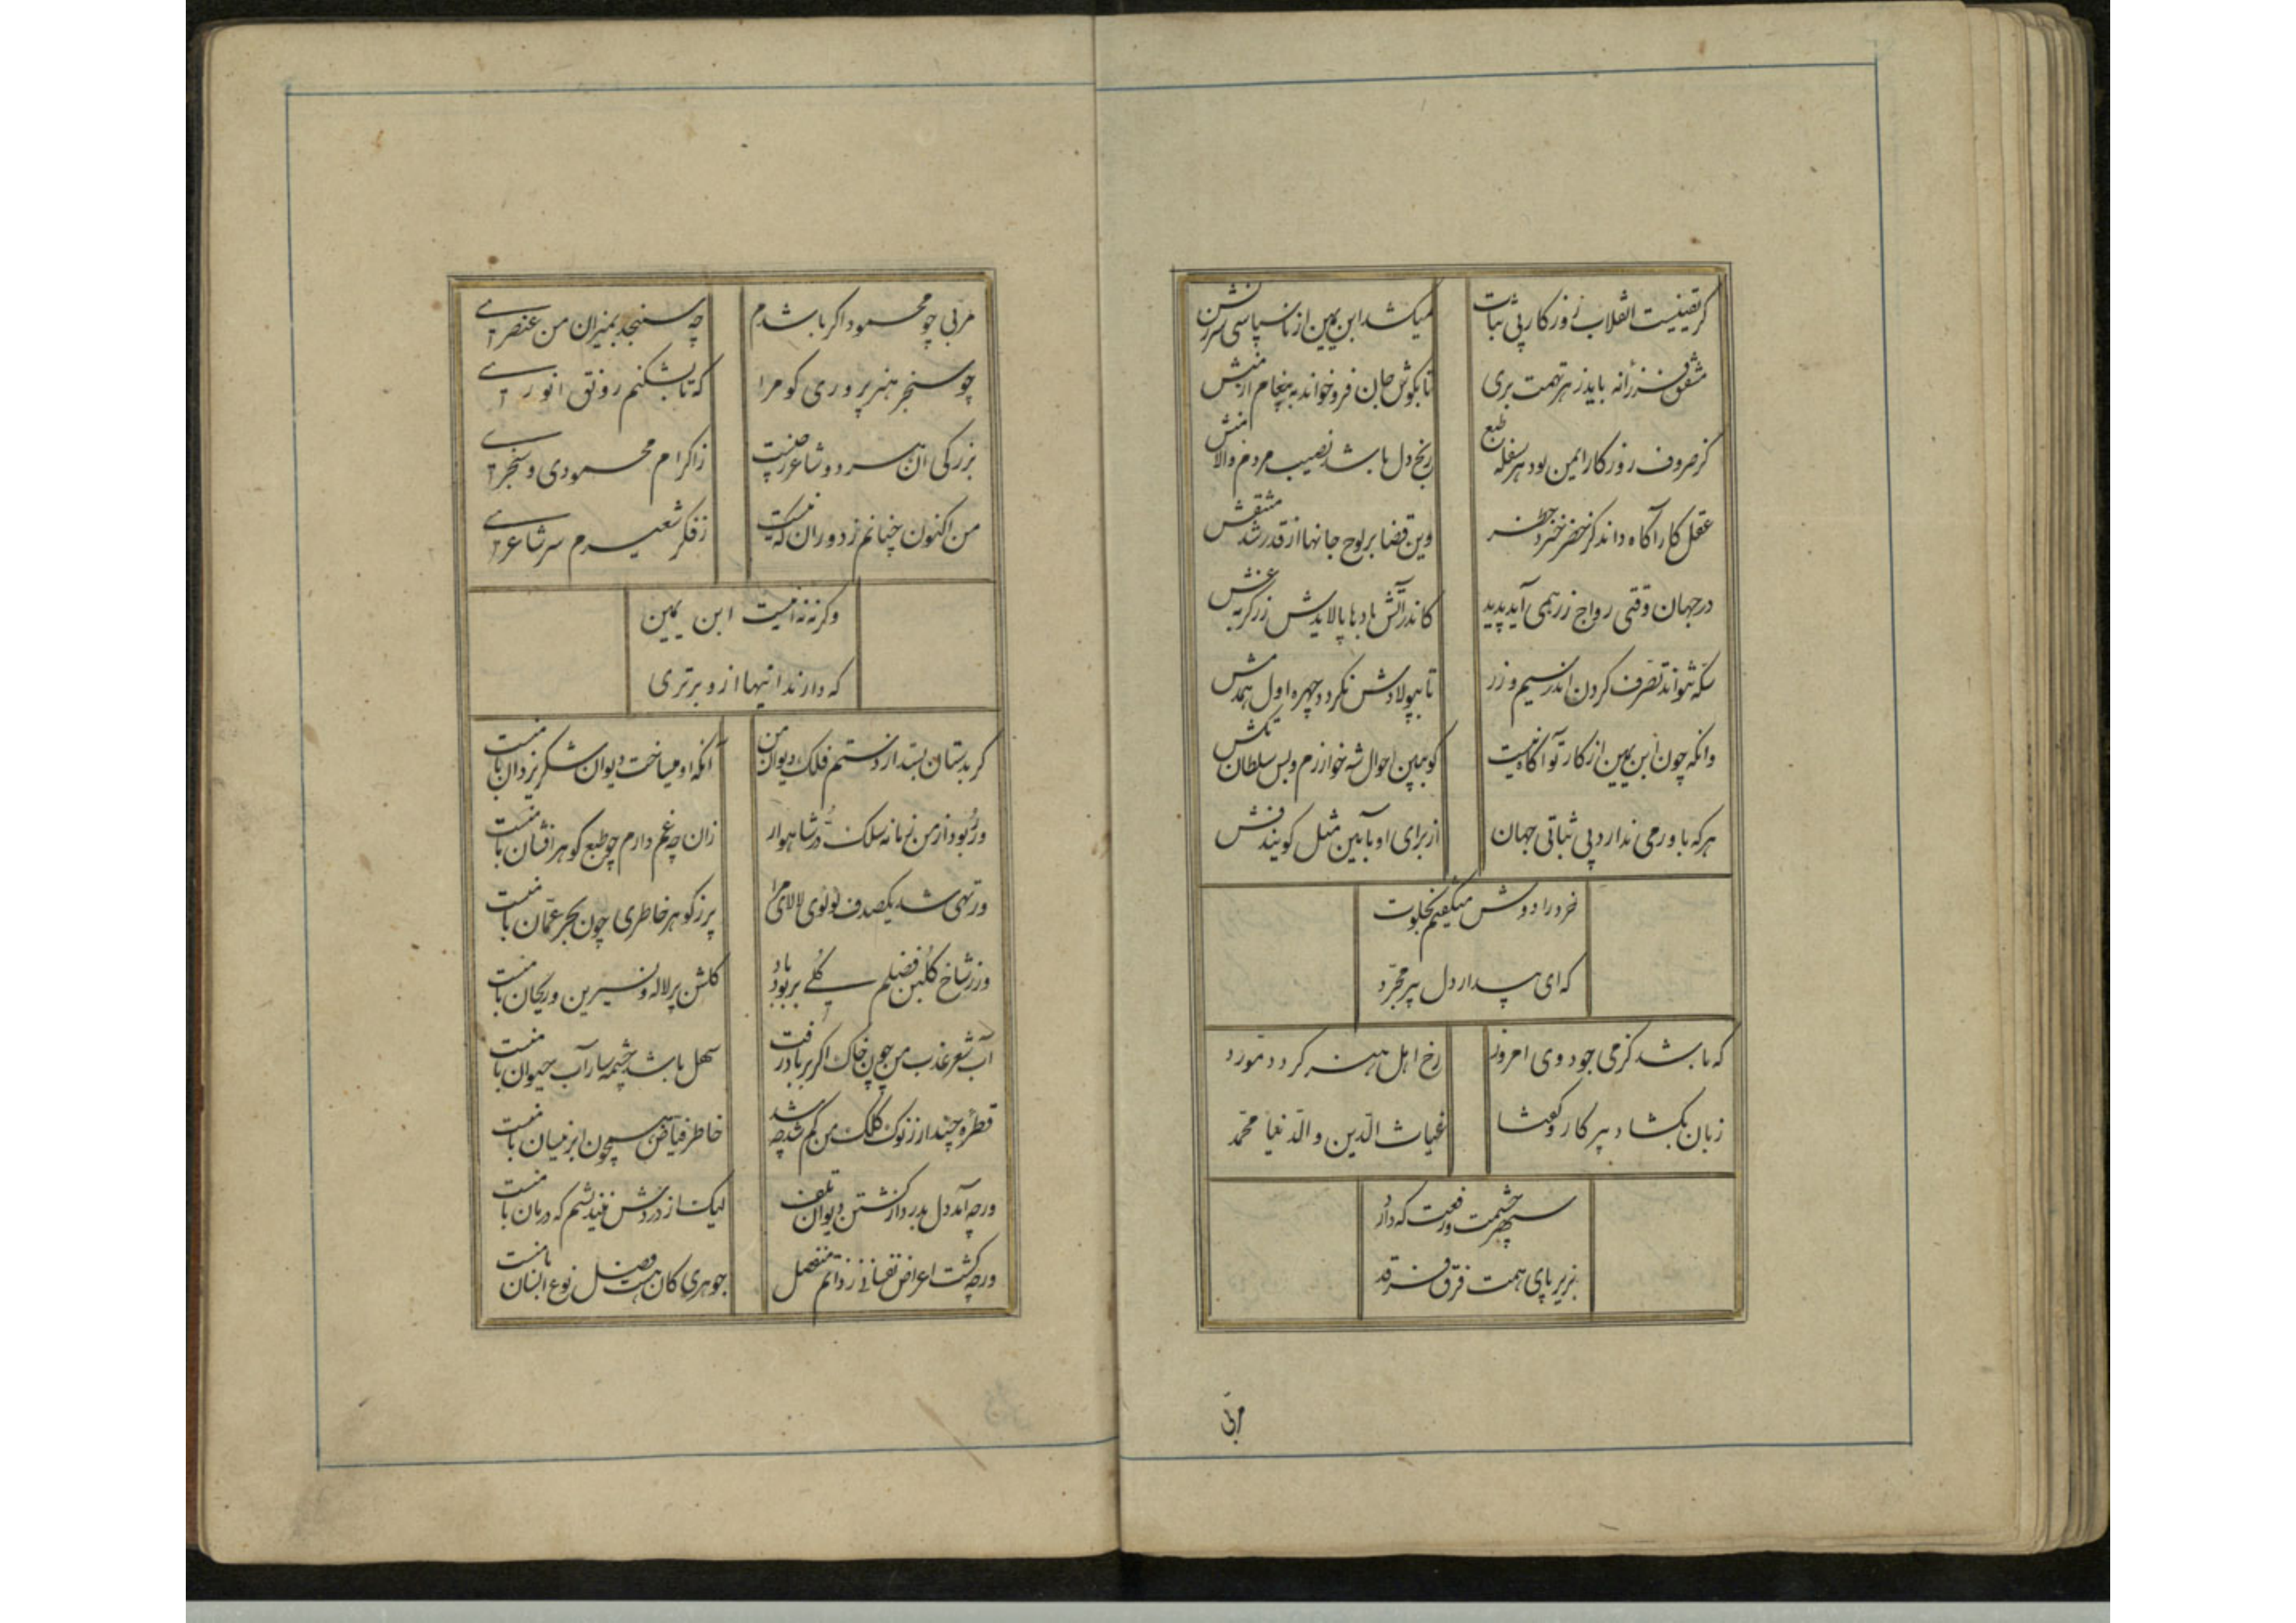 گر یقینیست انقلاب روزگار بی ثبات
میکشد ابن یمین از ناسپاسی سرزنش
مشفق فرزانه باید ز هر تهمت بری
تا بگوش جان فرو خواند به پیغام ازمنش
کز صروف روزگار ایمن بود هر سفله طبع
رنج دل باشد نصیب مردم والا منش
عقل کار آگاه داند کز خضر
وین قضا بر لوح جانها از قدر شد منتقش
در جهان وقتی رواج زر همی آید پدید
کاندر آتش بادها پالایدش زرگر بغش
سکه نتواند تصرف کردن اندر سیم و زر
تا بپولادش نگردد چهره اول همدمش
وانکه چون ابن یمین از کار تو آگاه نیست
کو ببین احوال شه خوارزم و بس سلطان تکش
هر که باور می ندارد بی ثباتی جهان
از برای او بآیین مثل گویند فش
خرد را دوش میگفتم بخلوت
که ای بیدار دل پیر مجرد
که باشد کز می جود وی امروز
رخ اهل هنر گردد مورد
زبان بگشاد پیر کار و گفتا
غیاث الدین و الدنیا محمد
سپهر حشمت و رفعت که دارد
بزیر پای همت فرق فرقد
مربی
مربی چو محمود اگر باشدم
چه سنجد بمیزان من عنصری
چو سنجر هنر پروری کو مرا
که تا بشکنم رونق انوری
بزرگی آن هر دو شاعر ز چیست
ز اکرام محمودی و سنجری
من اکنون چنانم ز دوران که نیست
ز فکر شعیرم سر شاعری
وگرنه نه آنیست ابن یمین
که دارند اینها ازو برتری
گر بدستان بستد از دستم فلک دیوان من
آنکه او میساخت دیوان شکر یزدان با منست
ور ربود از من زمانه سلک در شاهوار
زان چه غم دارم چو طبع گوهر افشان با منست
ور تهی شد یکصدف لؤلوی لالای مرا
پر ز گوهر خاطری چون بحر عمان با منست
ور ز شاخ گلبن فضلم گلی بربود باد
گلشن پر لاله و نسرین و ریحان با منست
آب شعر عذب من چون خاک اگر بر باد رفت
سهل باشد چشمه سار آب حیوان با منست
قطره چند ار ز نوک کلک من کم شد چه شد
خاطر فیاض همچون ابر نیسان با منست
ورچه آمد دل بدرد از گشتن دیوان تلف
لیک از دردش نیندیشم که درمان با منست
ورچه گشت اعراض نفسانی ز ذاتم منفصل
جوهری کان هست فصل نوع انسان با منست